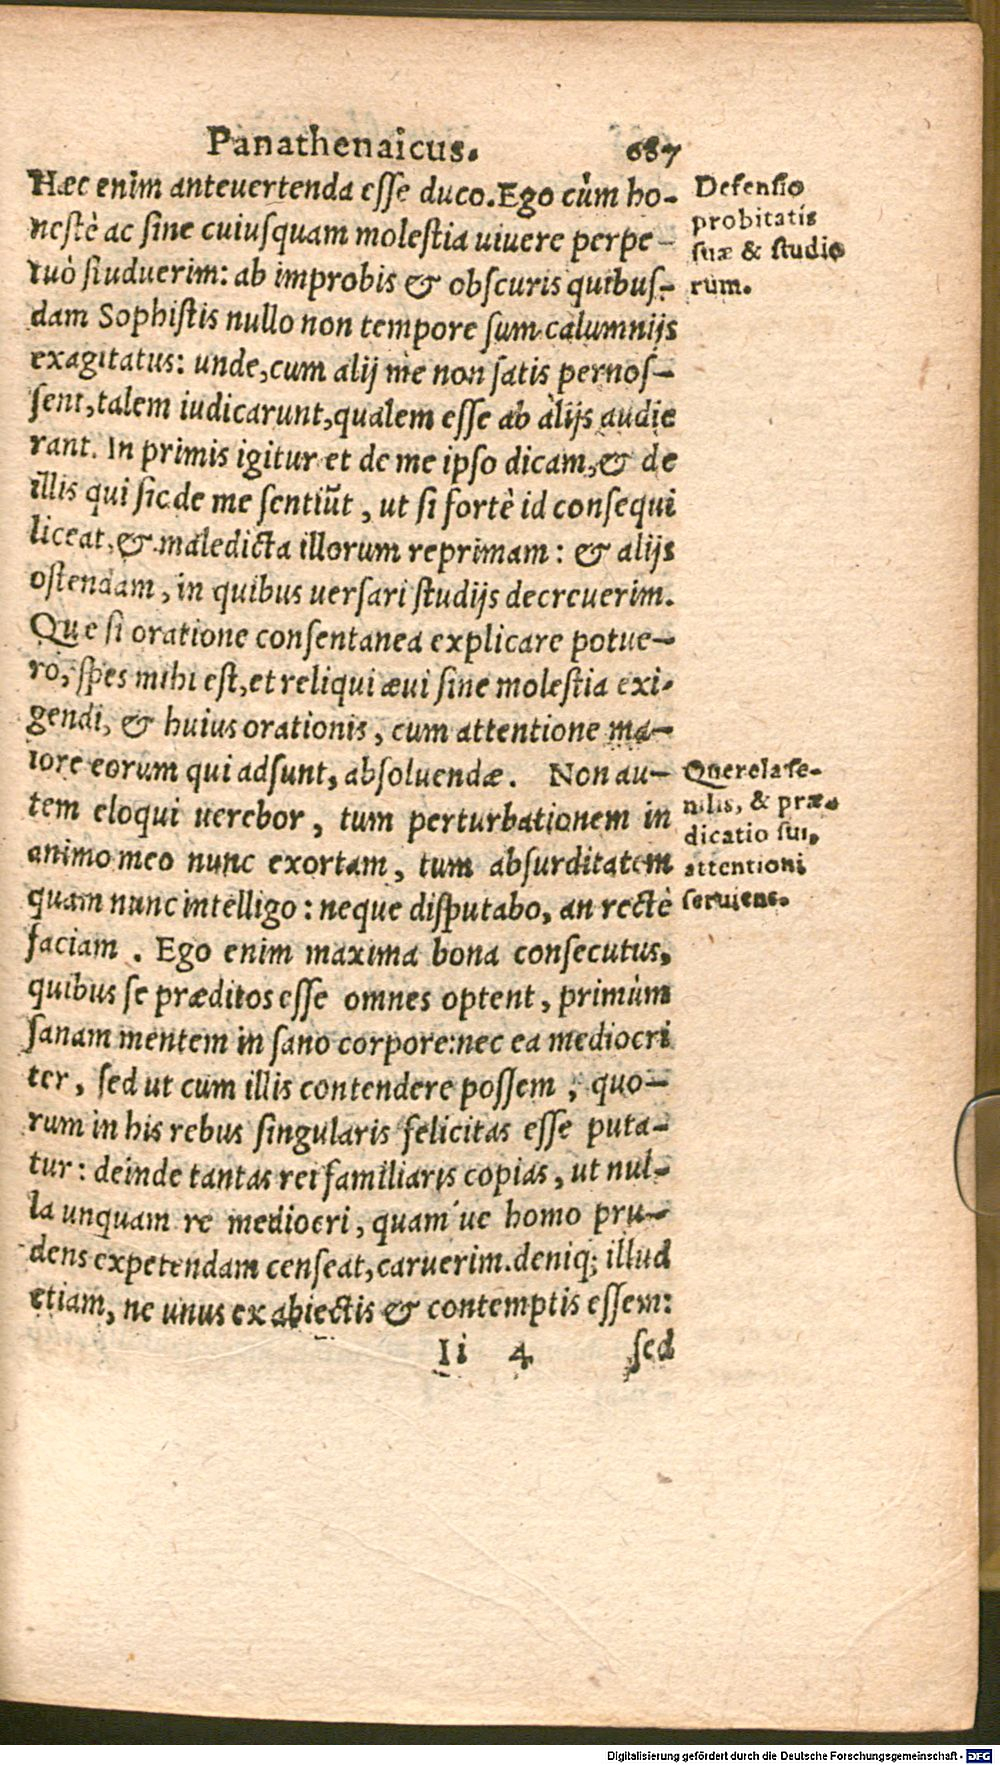 Panathenaicus. 687
Hæc enim anteuertenda esse duco. Ego cùm ho-
nestè ac sine cuiusquam molestia uiuere perpe-
tuò studuerim: ab improbis & obscuris quibus-
dam Sophistis nullo non tempore sum calumnijs
exagitatus: unde, cum alij me non satis pernos-
sent, talem iudicarunt, qualem esse ab alijs audie
rant. In primis igitur et de me ipso dicam, & de
illis qui sic de me sentiūt, ut si fortè id consequi
liceat, & maledicta illorum reprimam: & alijs
ostendam, in quibus uersari studijs decreuerim.
Que si oratione consentanea explicare potue-
ro, spes mihi est, et reliqui æui sine molestia exi-
gendi, & huius orationis, cum attentione ma-
iore eorum qui adsunt, absoluendæ. Non au-
tem eloqui uerebor, tum perturbationem in
animo meo nunc exortam, tum absurditatem
quam nunc intelligo: neque disputabo, an rectè
faciam. Ego enim maxima bona consecutus,
quibus se præditos esse omnes optent, primùm
sanam mentem in sano corpore: nec ea mediocri
ter, sed ut cum illis contendere possem, quo-
rum in his rebus singularis felicitas esse puta-
tur: deinde tantas rei familiaris copias, ut nul-
la unquam re mediocri, quam ue homo pru-
dens expetendam censeat, caruerim. deniq; illud
etiam, ne unus ex abiectis & contemptis essem:
Ii 4 sed
Defensio
probitatis
suæ & studio
rum.
Querela se-
nilis, & præ-
dicatio sui,
attentioni
seruiens.
Digitalisierung gefördert durch die Deutsche Forschungsgemeinschaft - DFG